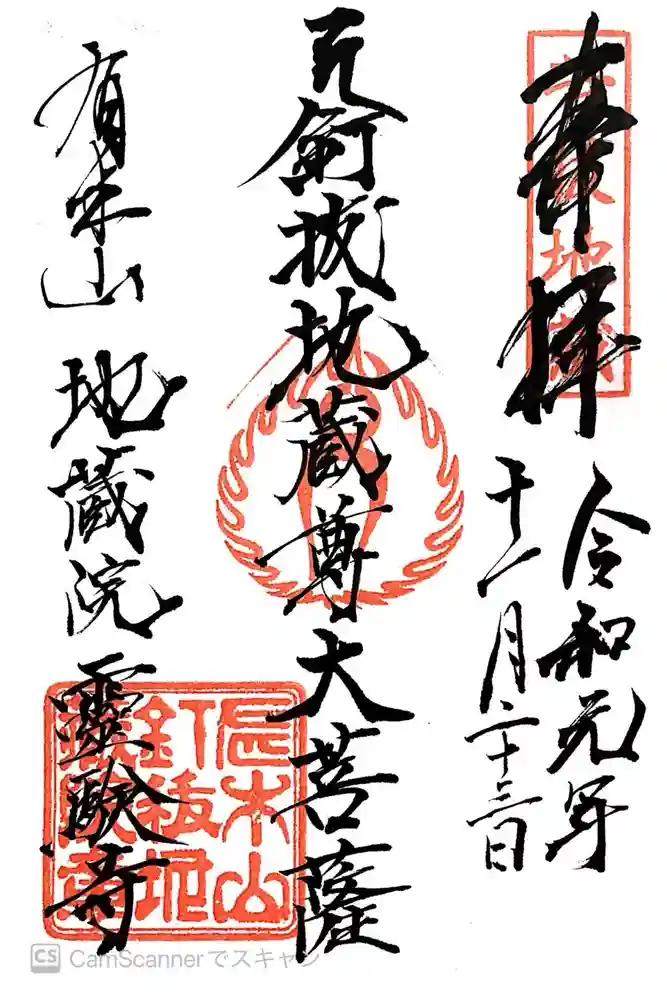 奉拝
令和元年
十一月二十三日
釘抜地蔵尊大菩薩
山 地蔵院 靈験寺
木山
釘抜地
CS CamScannerでスキャン